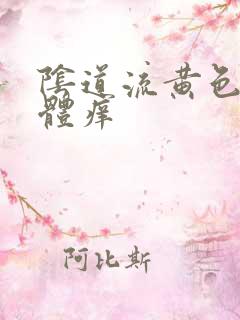 陰道流黄色
體痒
阿比斯